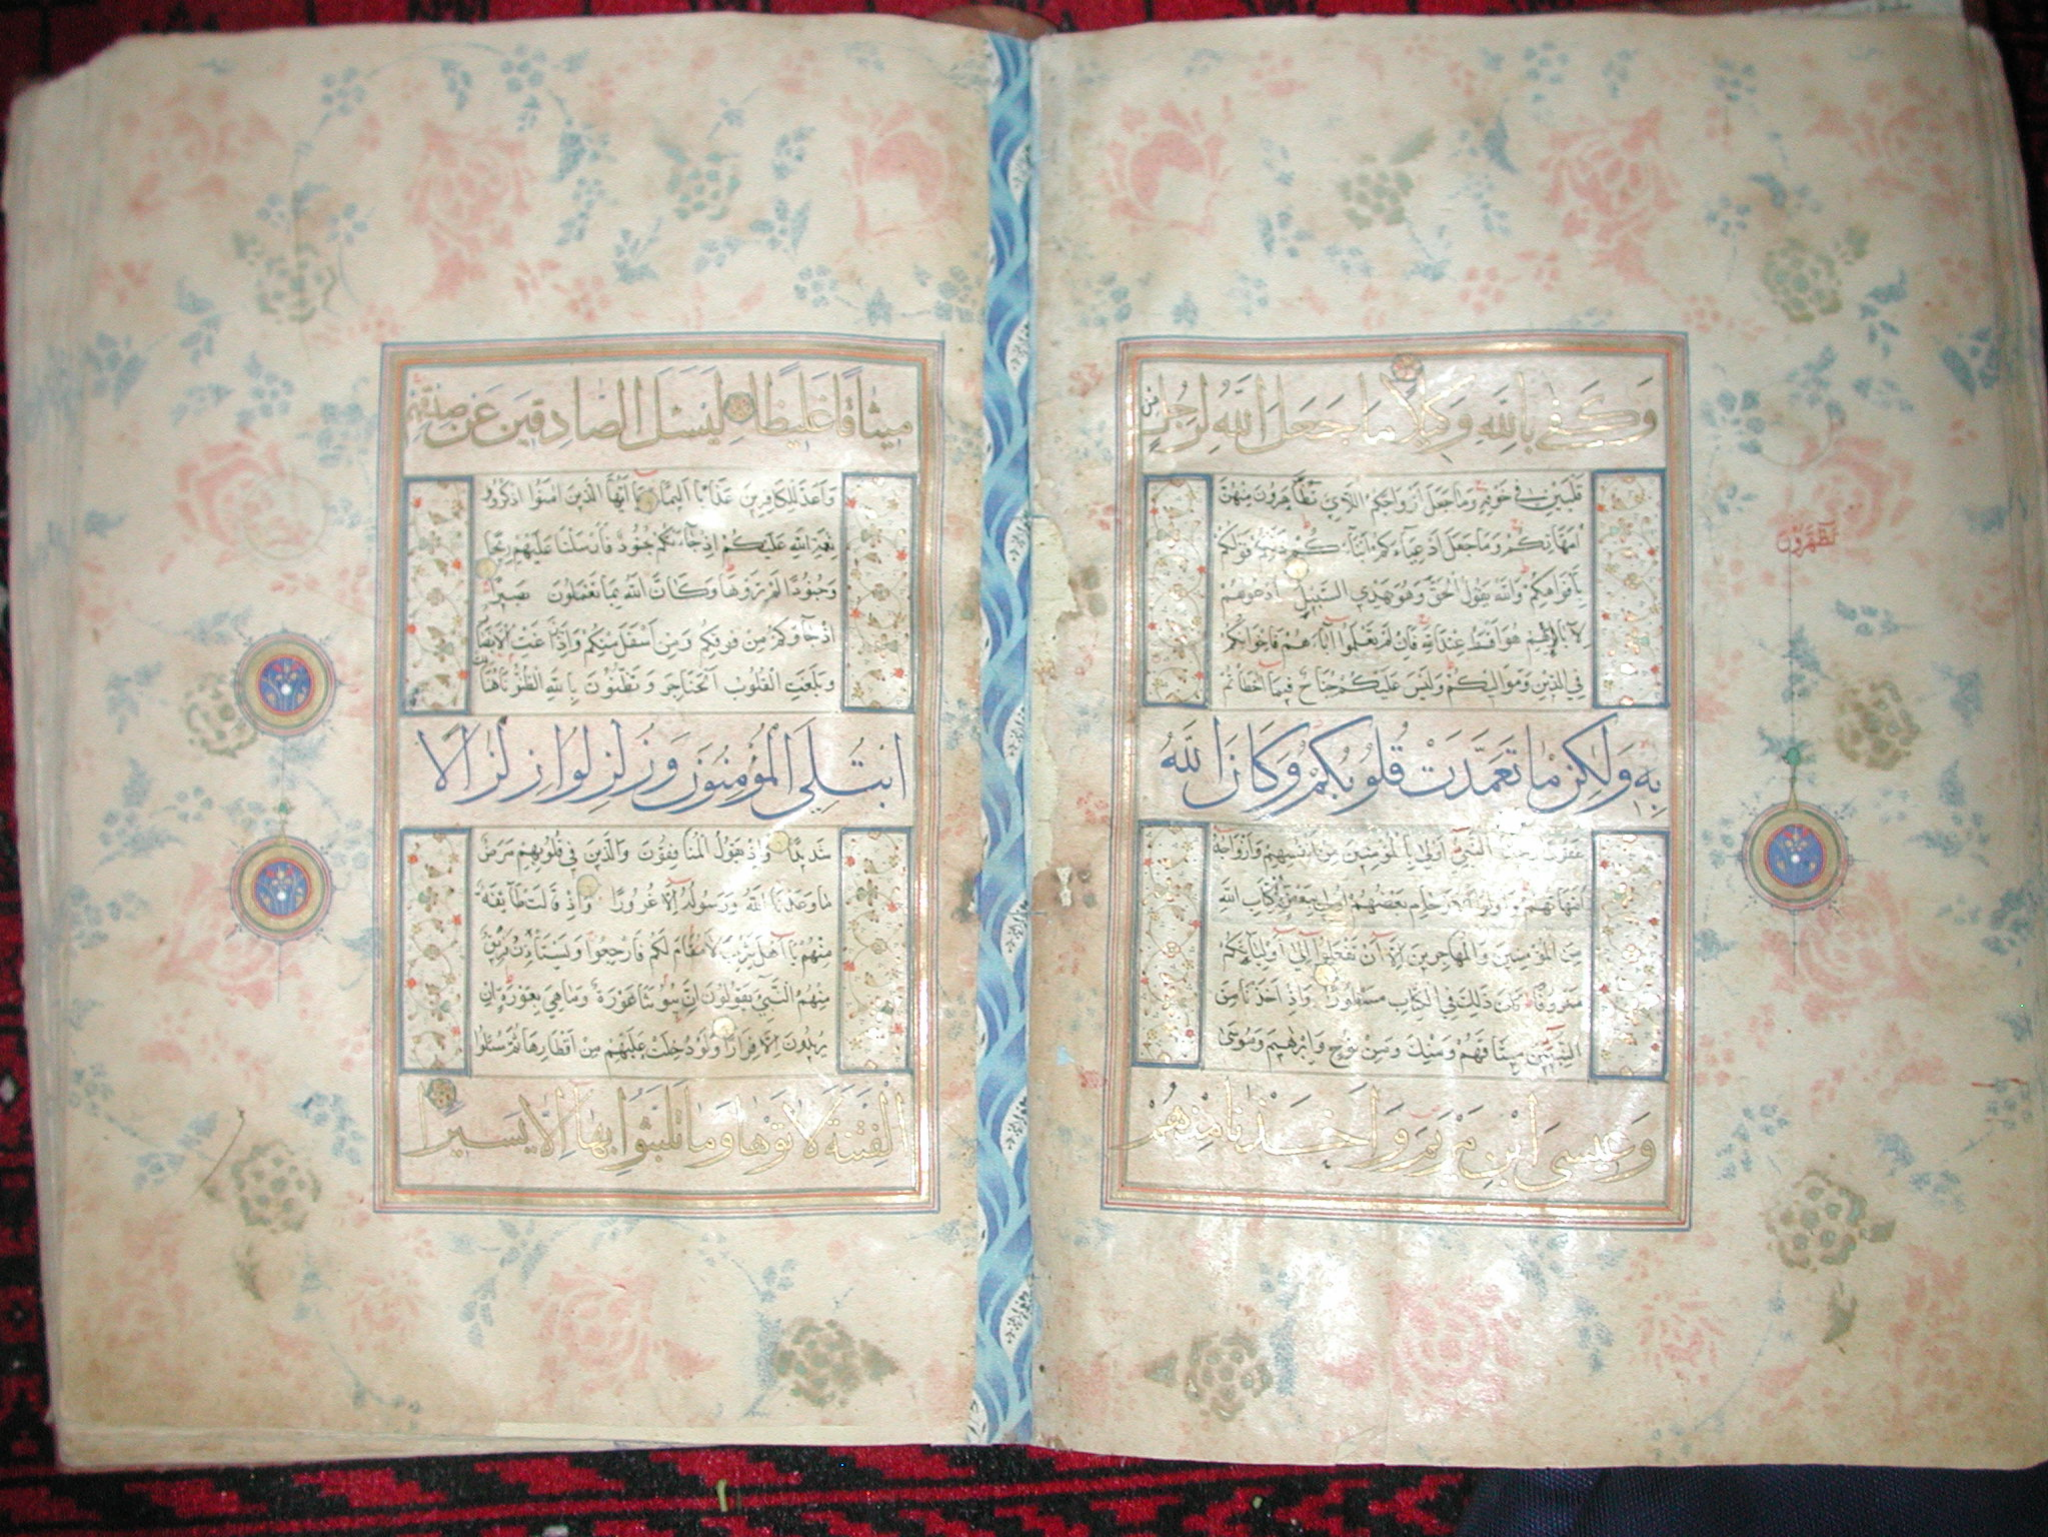 وَكَفَىٰ بِاللَّهِ وَكِيلًا مَا جَعَلَ اللَّهُ لِرَجُلٍ مِن
قَلْبَيْنِ فِي جَوْفِهِ وَمَا جَعَلَ أَزْوَاجَكُمُ اللَّائِي تُظَاهِرُونَ مِنْهُنَّ
أُمَّهَاتِكُمْ وَمَا جَعَلَ أَدْعِيَاءَكُمْ أَبْنَاءَكُمْ ذَٰلِكُمْ قَوْلُكُمْ
بِأَفْوَاهِكُمْ وَاللَّهُ يَقُولُ الْحَقَّ وَهُوَ يَهْدِي السَّبِيلَ ادْعُوهُمْ
لِآبَائِهِمْ هُوَ أَقْسَطُ عِنْدَ اللَّهِ فَإِنْ لَمْ تَعْلَمُوا آبَاءَهُمْ فَإِخْوَانُكُمْ
فِي الدِّينِ وَمَوَالِيكُمْ وَلَيْسَ عَلَيْكُمْ جُنَاحٌ فِيمَا أَخْطَأْتُمْ
بِهِ وَلَٰكِنْ مَا تَعَمَّدَتْ قُلُوبُكُمْ وَكَانَ اللَّهُ
غَفُورًا النَّبِيُّ أَوْلَىٰ بِالْمُؤْمِنِينَ مِنْ أَنْفُسِهِمْ وَأَزْوَاجُهُ
أُمَّهَاتُهُمْ وَأُولُو الْأَرْحَامِ بَعْضُهُمْ أَوْلَىٰ بِبَعْضٍ فِي كِتَابِ اللَّهِ
مِنَ الْمُؤْمِنِينَ وَالْمُهَاجِرِينَ إِلَّا أَنْ تَفْعَلُوا إِلَىٰ أَوْلِيَائِكُمْ
مَعْرُوفًا كَانَ ذَٰلِكَ فِي الْكِتَابِ مَسْطُورًا وَإِذْ أَخَذْنَا مِنَ
النَّبِيِّينَ مِيثَاقَهُمْ وَمِنْكَ وَمِنْ نُوحٍ وَإِبْرَٰهِيمَ وَمُوسَىٰ
وَعِيسَى ابْنِ مَرْيَمَ وَأَخَذْنَا مِنْهُمْ
مِيثَاقًا غَلِيظًا لِيَسْئَلَ الصَّادِقِينَ عَنْ صِدْقِهِمْ
وَأَعَدَّ لِلْكَافِرِينَ عَذَابًا أَلِيمًا يَا أَيُّهَا الَّذِينَ آمَنُوا اذْكُرُوا
نِعْمَةَ اللَّهِ عَلَيْكُمْ إِذْ جَاءَتْكُمْ جُنُودٌ فَأَرْسَلْنَا عَلَيْهِمْ رِيحًا
وَجُنُودًا لَمْ تَرَوْهَا وَكَانَ اللَّهُ بِمَا تَعْمَلُونَ بَصِيرًا
إِذْ جَاءُوكُمْ مِنْ فَوْقِكُمْ وَمِنْ أَسْفَلَ مِنْكُمْ وَإِذْ زَاغَتِ الْأَبْصَارُ
وَبَلَغَتِ الْقُلُوبُ الْحَنَاجِرَ وَتَظُنُّونَ بِاللَّهِ الظُّنُونَا هُنَالِكَ
ابْتُلِيَ الْمُؤْمِنُونَ وَزُلْزِلُوا زِلْزَالًا
شَدِيدًا وَإِذْ يَقُولُ الْمُنَافِقُونَ وَالَّذِينَ فِي قُلُوبِهِمْ مَرَضٌ
مَا وَعَدَنَا اللَّهُ وَرَسُولُهُ إِلَّا غُرُورًا وَإِذْ قَالَتْ طَائِفَةٌ
مِنْهُمْ يَا أَهْلَ يَثْرِبَ لَا مُقَامَ لَكُمْ فَارْجِعُوا وَيَسْتَأْذِنُ فَرِيقٌ
مِنْهُمُ النَّبِيَّ يَقُولُونَ إِنَّ بُيُوتَنَا عَوْرَةٌ وَمَا هِيَ بِعَوْرَةٍ إِنْ
يُرِيدُونَ إِلَّا فِرَارًا وَلَوْ دُخِلَتْ عَلَيْهِمْ مِنْ أَقْطَارِهَا ثُمَّ سُئِلُوا
الْفِتْنَةَ لَآتَوْهَا وَمَا تَلَبَّثُوا بِهَا إِلَّا يَسِيرًا